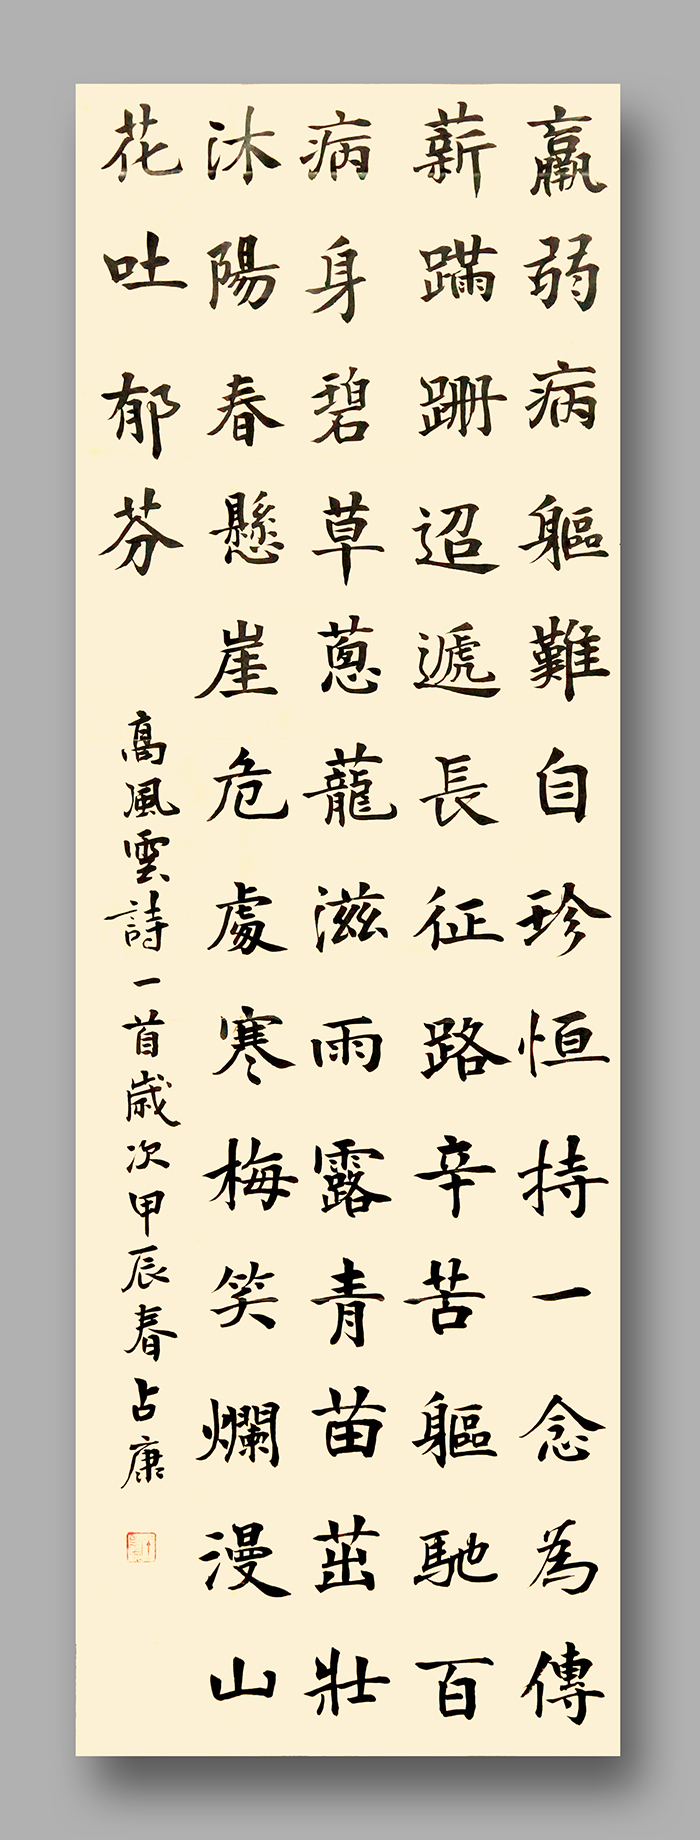 羸弱病軀難自珍恒持一念為傳
薪蹣跚迢遞長征路辛苦軀馳百
病身碧草蔥蘢滋雨露青苗茁壯
沐陽春懸崖危處寒梅笑爛漫山
花吐郁芬
高風雲詩一首歲次甲辰春占康